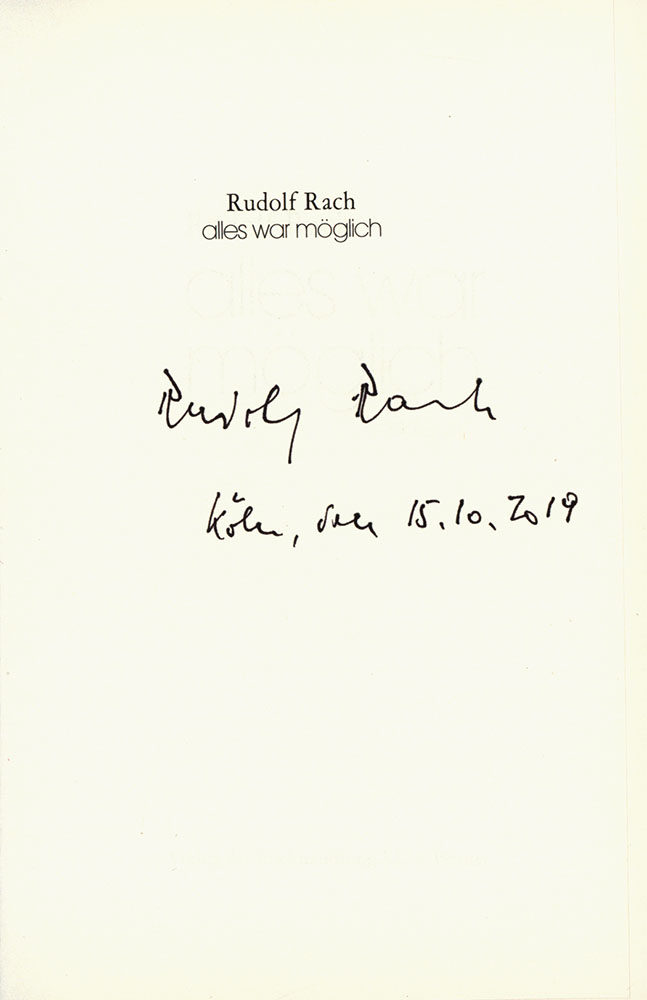 Rudolf Rach
alles war möglich
alles war
möglich
Rudolf Rach
Köln, den 15.10.2019